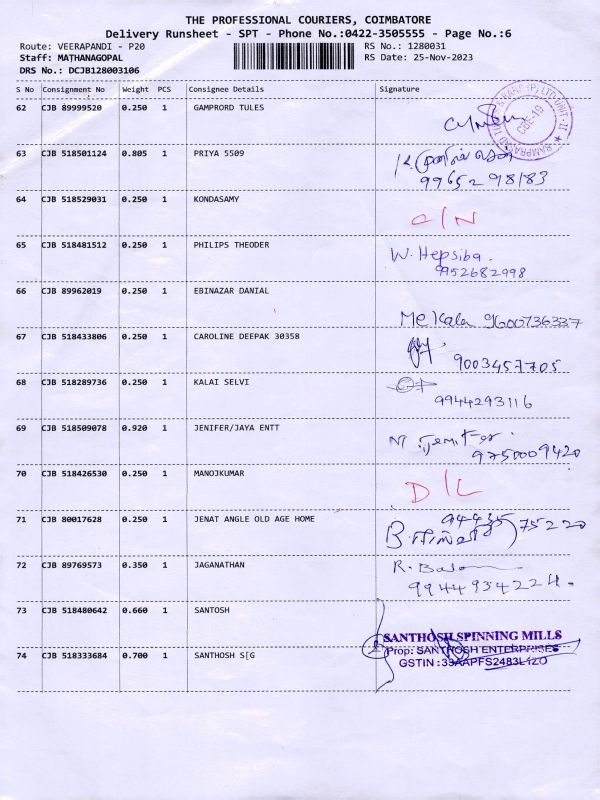 THE PROFESSIONAL COURIERS, COIMBATORE
Delivery Runsheet - SPT - Phone No.:0422-3505555 - Page No.:6
Route: VEERAPANDI - P20
Staff: MATHANAGOPAL
DRS No.: DCJB128003106
RS No.: 1280031
RS Date: 25-Nov-2023
S No Consignment No Weight PCS Consignee Details Signature
62 CJB 89999520 0.250 1 GAMPRORD TULES
CBE-19
63 CJB 518501124 0.805 1 PRIYA 5509
99652 98183
64 CJB 518529031 0.250 1 KONDASAMY
C/N
65 CJB 518481512 0.250 1 PHILIPS THEODER W. Hepsiba.
9952682998
66 CJB 89962019 0.250 1 EBINAZAR DANIAL
Mekala 9600736337
67 CJB 518433806 0.250 1 CAROLINE DEEPAK 30358
9003457705
68 CJB 518289736 0.250 1 KALAI SELVI
9944293116
69 CJB 518509078 0.920 1 JENIFER/JAYA ENTT
9750009420
70 CJB 518426530 0.250 1 MANOJKUMAR
D/L
71 CJB 80017628 0.250 1 JENAT ANGLE OLD AGE HOME 94435 75220
72 CJB 89769573 0.350 1 JAGANATHAN
9944934224.
73 CJB 518480642 0.660 1 SANTOSH
SANTHOSH SPINNING MILLS
Prop: SANTHOSH ENTERPRISES
74 CJB 518333684 0.700 1 SANTHOSH S[G
GSTIN :33AAPFS2483L1ZO